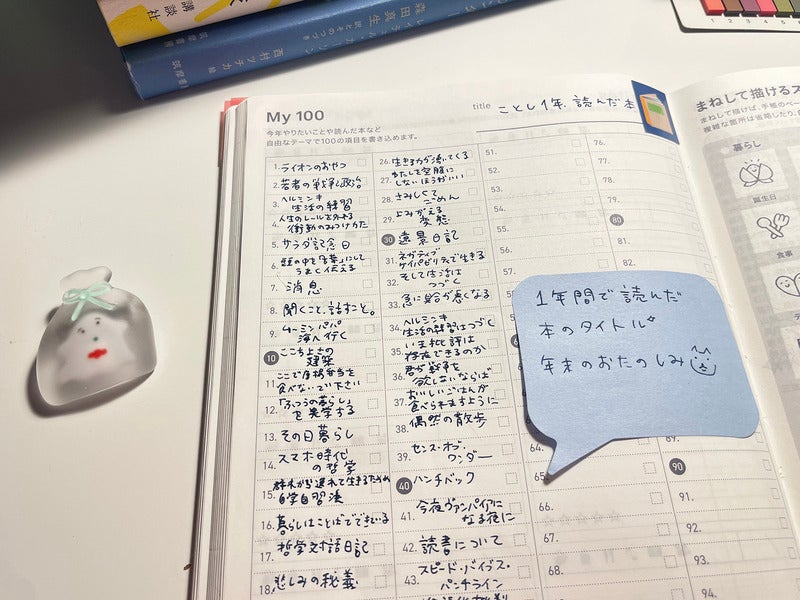 講談社
筑摩書房
森田真生
西村ツチカ 絵
筑摩書房
1 2 3 4 5 6
My 100
今年やりたいことや読んだ本など
自由なテーマで100の項目を書き込めます。
title ことし1年、読んだ本
1. ライオンのおやつ
2. 若者の戦争と政治
3. ヘルシンキ
生活の練習
4. 人生のレールを外れる
衝動のみつけかた
5. サラダ記念日
6. 頭の中を「言葉」にして
うまく伝える
7. 消息
8. 聞くこと、話すこと。
9. ムーミンパパ
海へ行く
10 ここちよさの
建築
11. ここで唐揚弁当を
食べないで下さい
12. 「ふつうの暮らし」
を美学する
13. その日暮らし
14. スマホ時代
の哲学
15. 群れから逸れて生きるための
自学自習法
16. 暮らしはことばでできている
17. 哲学対話日記
18. 悲しみの秘義
26. 生きる力が湧いてくる
27. わたしを空腹に
しないほうがいい
28. さみしくて
ごめん
29. よみがえる
変態
30 遠景日記
31. ネガティブ
ケイパビリティで生きる
32. そして生活は
つづく
33. 急に具合が悪くなる
34. ヘルシンキ
生活の練習はつづく
35. いま批評は
存在できるのか
36. 君が戦争を
欲しないならば
37. おいしいごはんが
食べられますように
38. 偶然の散歩
39. センス・オブ・
ワンダー
40 ハンチバック
41. 今夜ヴァンパイアに
なる前に
42. 読書について
43. スピード・バイブス・
パンチライン
51.
52.
53.
54.
55.
56.
57.
65.
66.
67.
68.
76.
77.
78.
79.
80
81.
82.
89.
90
91.
92.
93.
94.
1年間で読んだ
本のタイトル
年末のおたのしみ
まねして描けるス
まねして描けば、手帳のペー
複雑な箇所は省略したり、
暮らし
誕生日
食事